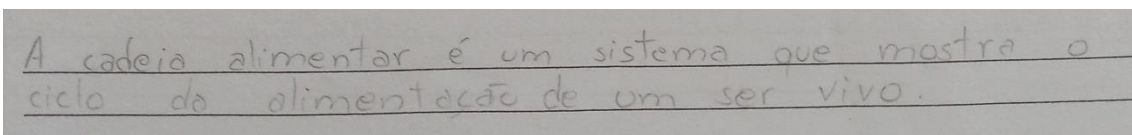 A cadeia alimentar é um sistema que mostra o
ciclo da alimentação de um ser vivo.